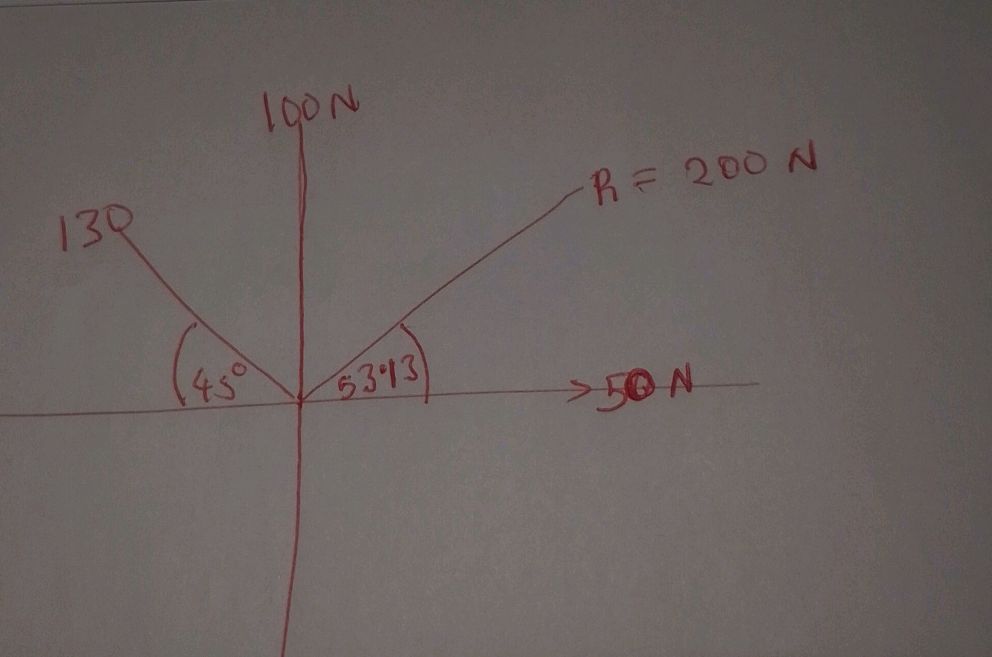 100N
R = 200 N
130
45°
53.13
50 N